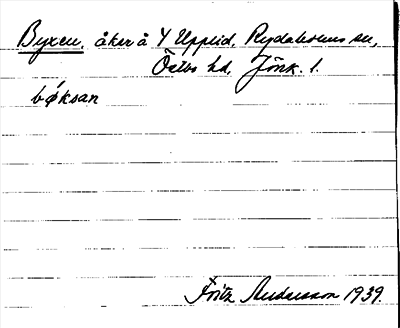 Byxen, åker å Y Upplid, Rydaholms sn,
Östbo hd, Jönk. l.
bǿksan
Fritz Andersson 1939.